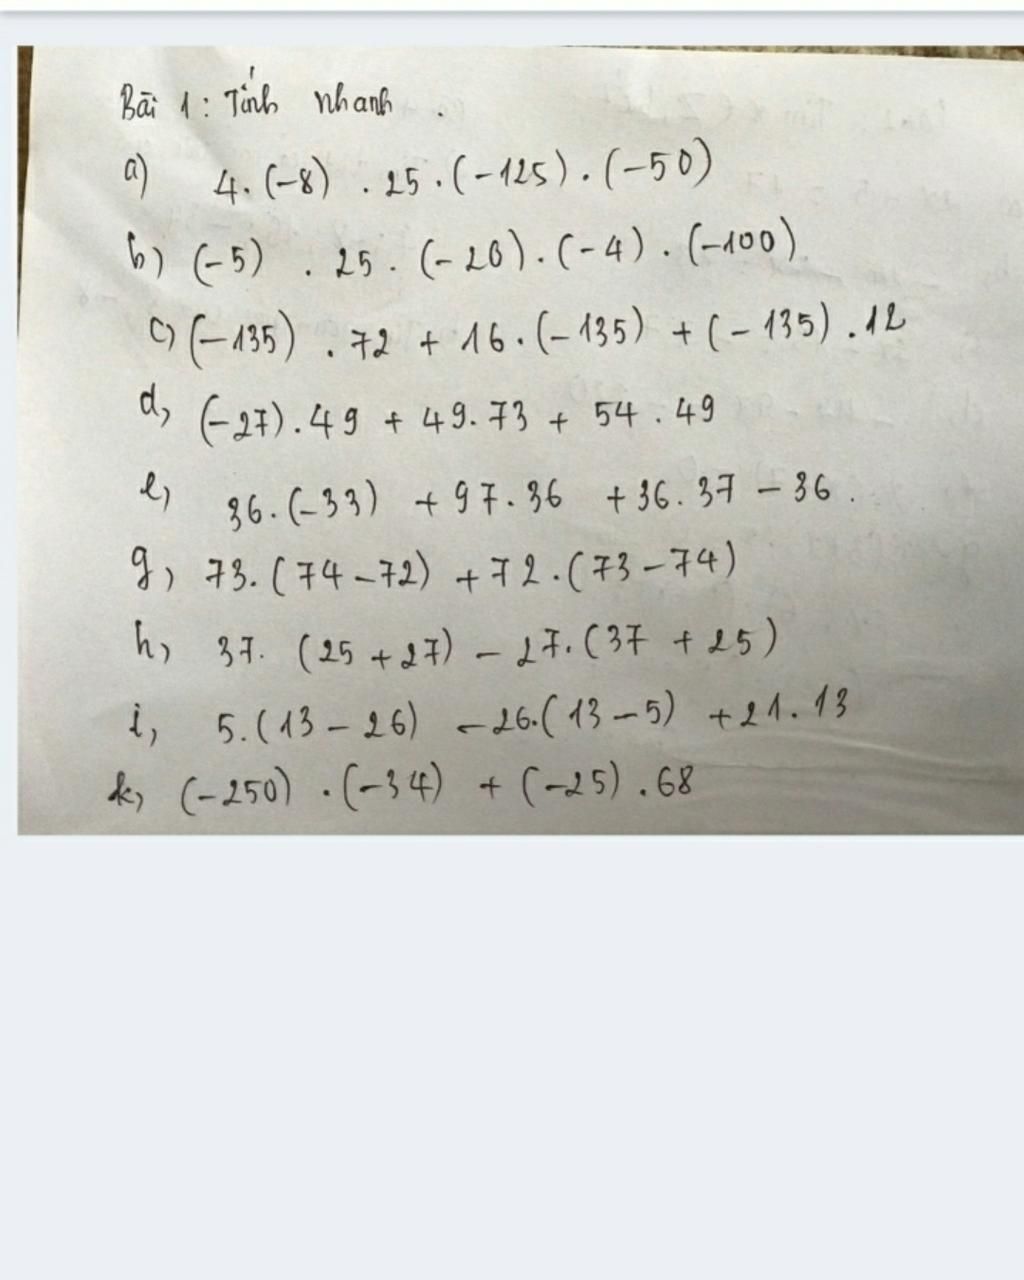 Bài 1: Tính nhanh.
a) 4.(-8) . 25.(-125).(-50)
b) (-5) . 25. (-20).(-4).(-100)
c) (-135) . 72 + 16.(-135) + (-135).12
d, (-27).49 + 49.73 + 54.49
e, 36.(-33) + 97.36 + 36.37 - 36.
g, 73.(74-72) + 72.(73-74)
h, 37. (25+27) - 27.(37 + 25)
i, 5.(13-26) -26.(13-5) +21.13
k, (-250) .(-34) + (-25).68